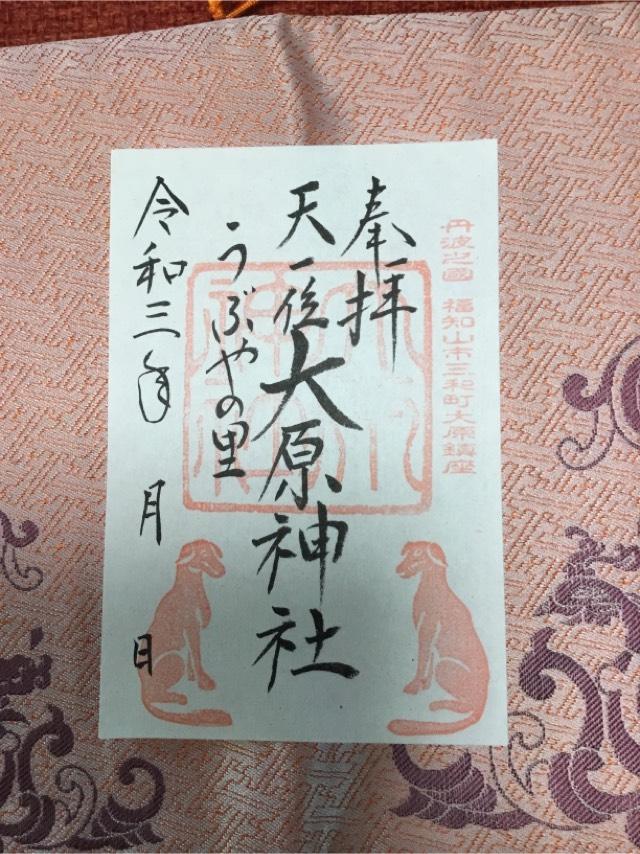 丹波之國 福知山市三和町大原鎮座
奉拝
天一位 大原神社
うぶやの里
令和三年 月 日